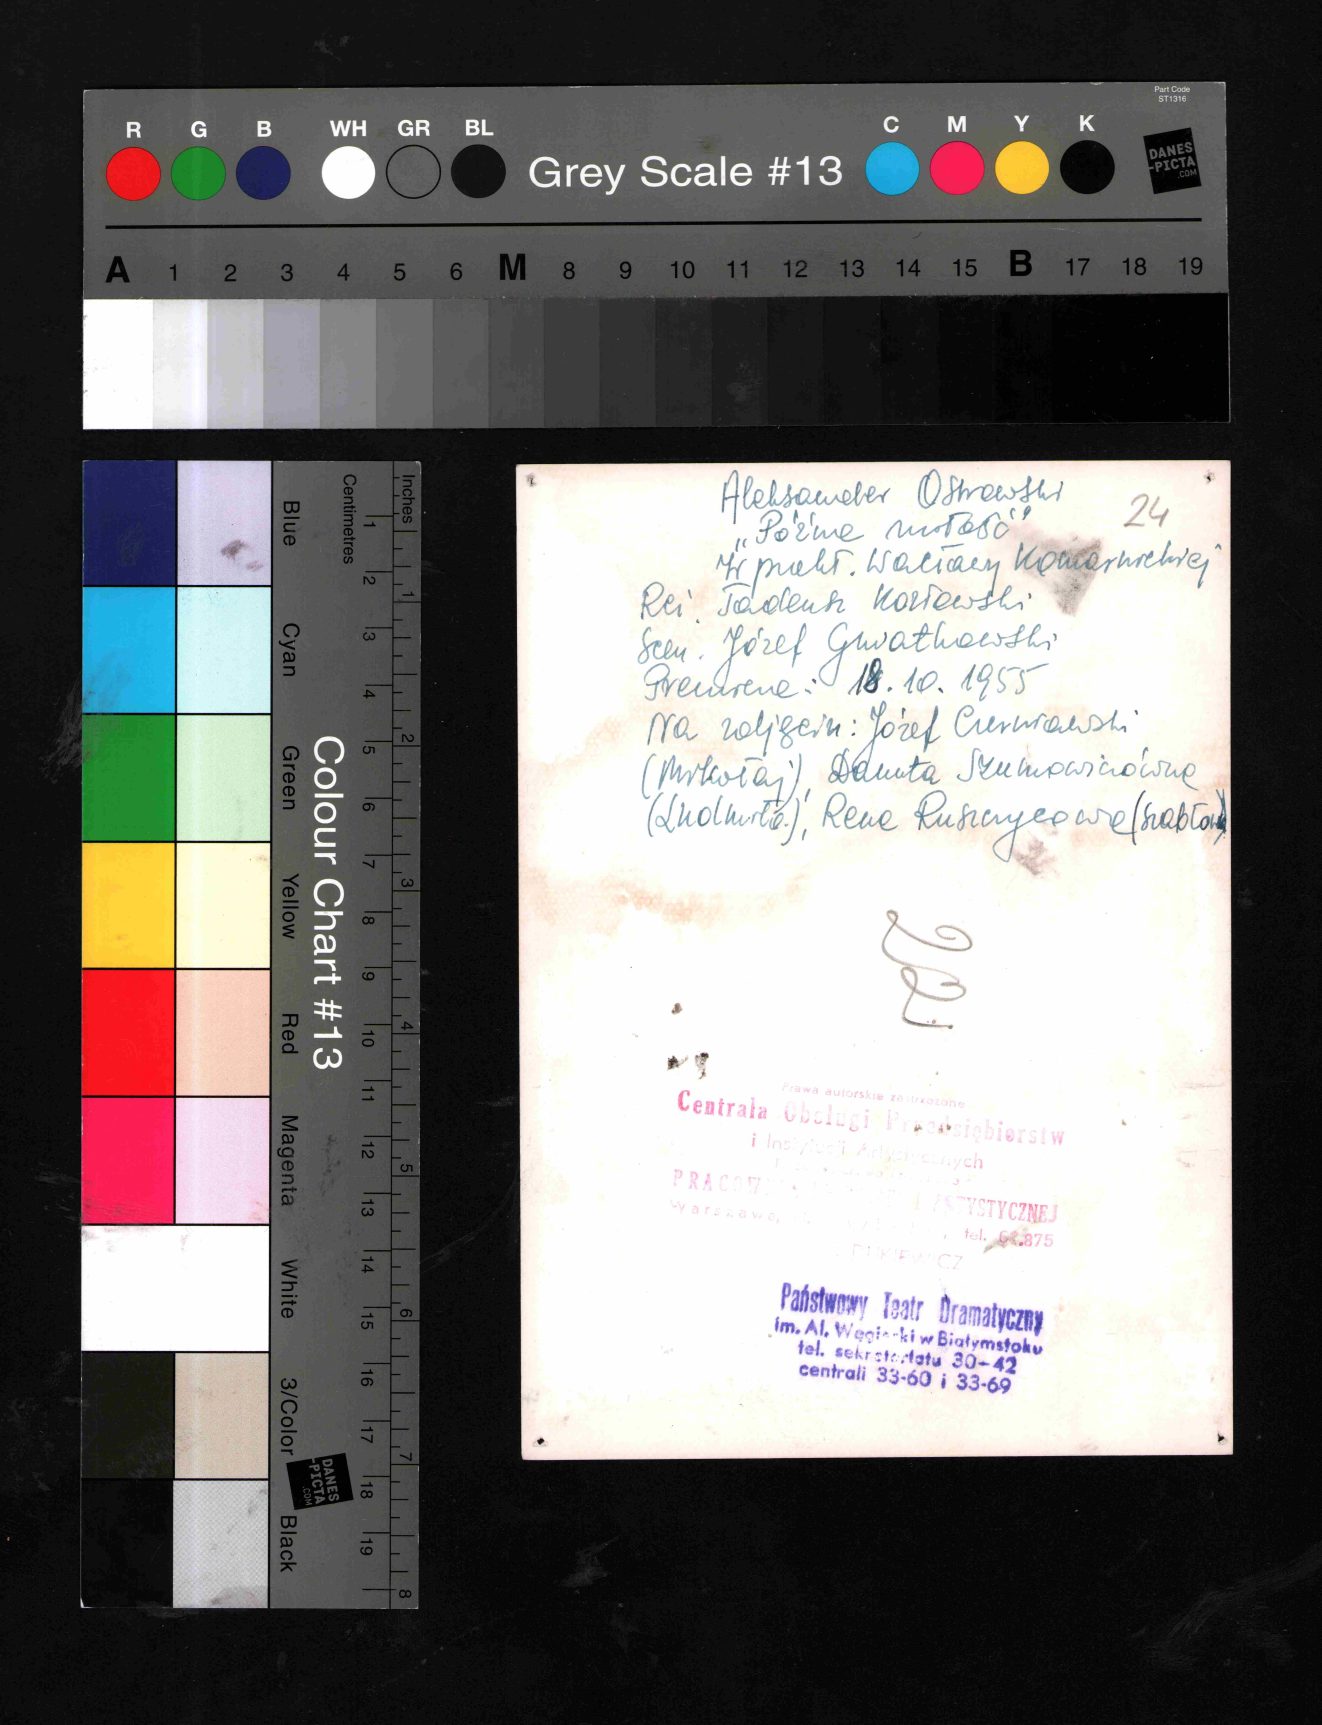 Part Code
ST1316
R G B WH GR BL Grey Scale #13 C M Y K
DANES
-PICTA
.COM
A 1 2 3 4 5 6 M 8 9 10 11 12 13 14 15 B 17 18 19
Blue
Cyan
Green
Yellow
Red
Magenta
White
3/Color
Black
Colour Chart #13
DANES
-PICTA
.COM
Centimetres
1 2 3 4 5 6 7 8 9 10 11 12 13 14 15 16 17 18 19
Inches
1 2 3 4 5 6 7 8
Aleksander Ostrowski
24
„Późna miłość”
W przekł. Wacławy Komarnickiej
Reż. Tadeusz Kozłowski
Scen. Józef Gwiatkowski
Premiera: 18.10.1955
Na zdjęciu: Józef Czerniawski
(Mikołaj), Danuta Szumowiczówna
(Ludmiła), Rena Ruszczycowa (Szabłowa)
Prawa autorskie zastrzeżone
Centrala Obsługi Przedsiębiorstw
i Instytucji Artystycznych
ARTYSTYCZNEJ
Warszawa, tel.
Państwowy Teatr Dramatyczny
im. Al. Węgierki w Białymstoku
tel. sekretariatu 30-42
centrali 33-60 i 33-69